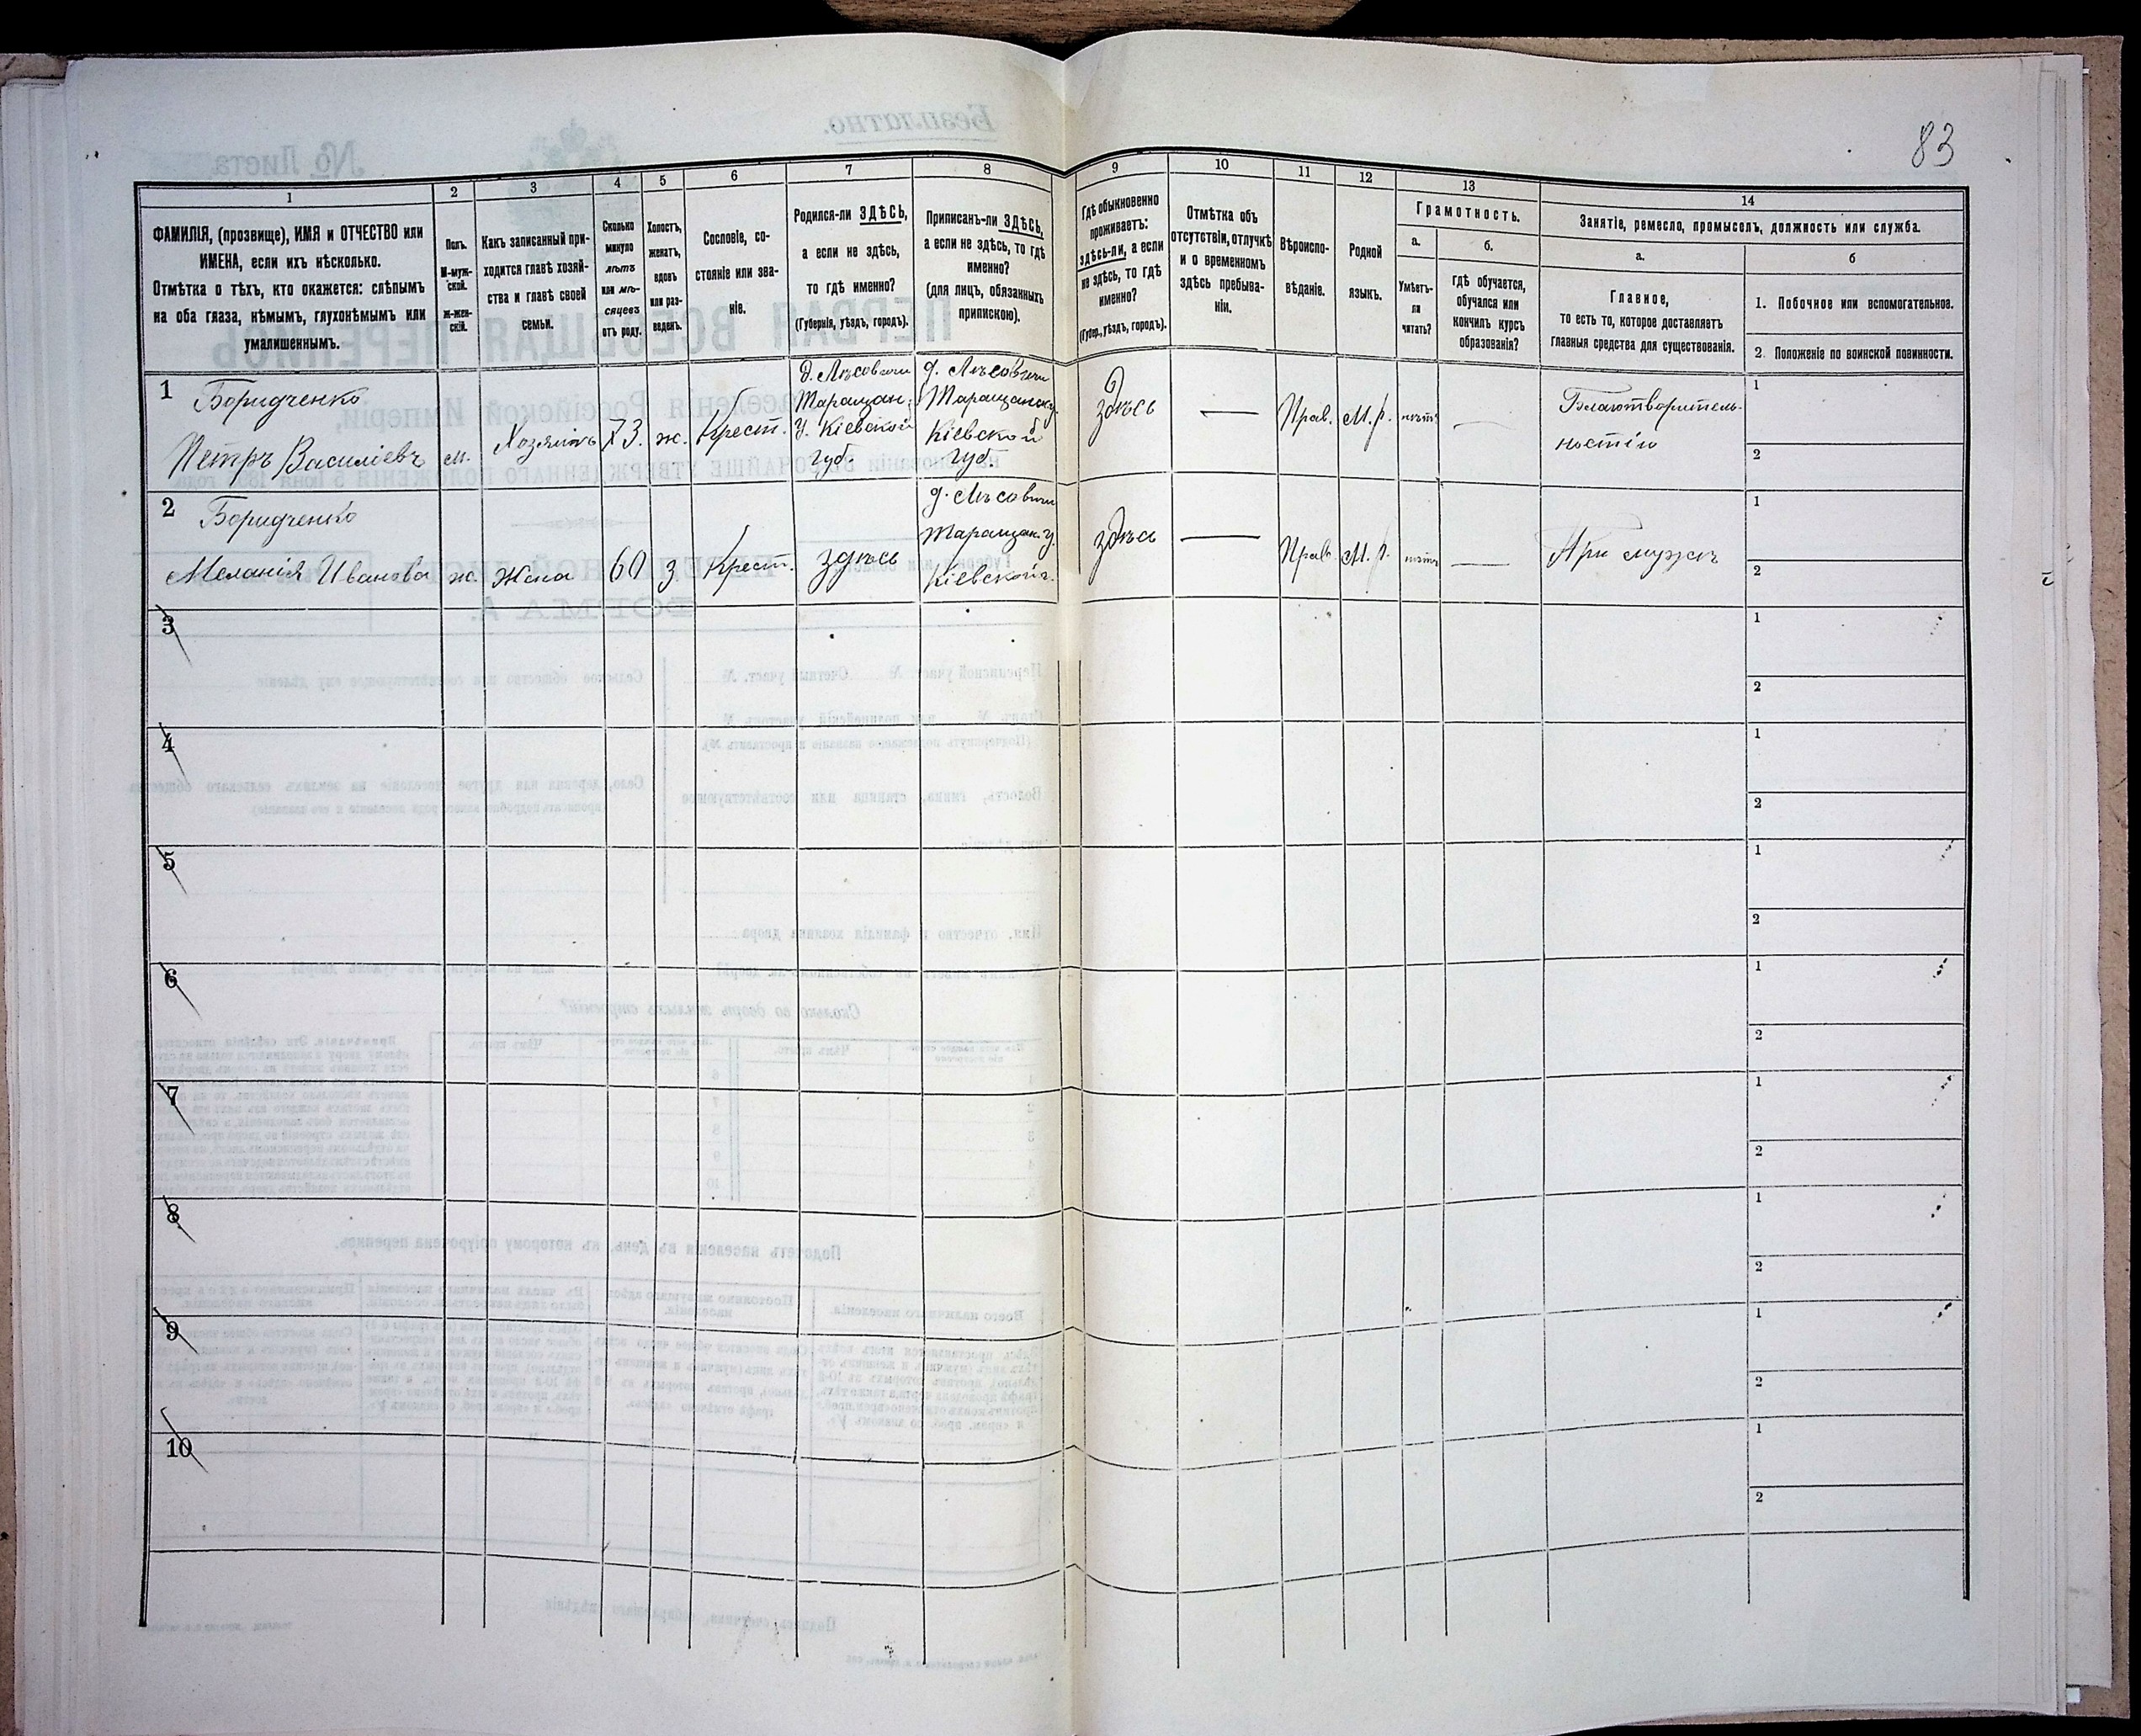 83
1 2 3 4 5 6 7 8 9 10 11 12 13 14
ФАМИЛІЯ, (прозвище), ИМЯ и ОТЧЕСТВО или
ИМЕНА, если ихъ нѣсколько.
Отмѣтка о тѣхъ, кто окажется: слѣпымъ
на оба глаза, нѣмымъ, глухонѣмымъ или
умалишеннымъ.
Полъ.
М-муж-
ской.
Ж-жен-
скій.
Какъ записанный при-
ходится главѣ хозяй-
ства и главѣ своей
семьи.
Сколько
минуло
лѣтъ
или мѣ-
сяцевъ
отъ роду.
Холостъ,
женатъ,
вдовъ
или раз-
веденъ.
Сословіе, со-
стояніе или зва-
ніе.
Родился-ли ЗДѢСЬ,
а если не здѣсь,
то гдѣ именно?
(Губернія, уѣздъ, городъ).
Приписанъ-ли ЗДѢСЬ,
а если не здѣсь, то гдѣ
именно?
(для лицъ, обязанныхъ
припискою).
Гдѣ обыкновенно
проживаетъ:
здѣсь-ли, а если
не здѣсь, то гдѣ
именно?
(Губер., уѣздъ, городъ).
Отмѣтка объ
отсутствіи, отлучкѣ
и о временномъ
здѣсь пребыва-
ніи.
Вѣроиспо-
вѣданіе.
Родной
языкъ.
Грамотность.
а.
Умѣетъ-
ли
читать?
б.
гдѣ обучается,
обучался или
кончилъ курсъ
образованія?
Занятіе, ремесло, промыселъ, должность или служба.
а.
Главное,
то есть то, которое доставляетъ
главныя средства для существованія.
б
1. Побочное или вспомогательное.
2. Положеніе по воинской повинности.
1
Боридченко
Петръ Василіевъ
м.
Хозяинъ
73.
ж.
Крест.
д. Лѣсовичи
Таращан.
у. Кіевской
губ.
д. Лѣсовичи
Таращанск.
Кіевской
губ.
здѣсь
—
Прав.
М. р.
нѣтъ
—
Благотворитель-
ностію
1
2
2
Боридченко
Меланія Иванова
ж.
Жена
60
з
Крест.
здѣсь
д. Лѣсовичи
Таращан. у.
Кіевской г.
здѣсь
—
Прав.
М. р.
нѣтъ
—
При мужѣ
1
2
3
1
2
4
1
2
5
1
2
6
1
2
7
1
2
8
1
2
9
1
2
10
1
2